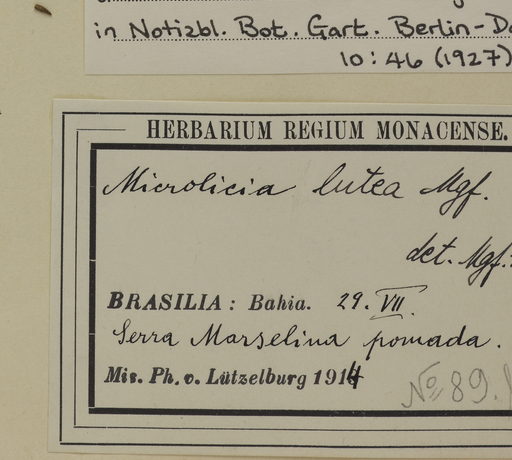 in Notizbl. Bot. Gart. Berlin-Da
10: 46 (1927)
HERBARIUM REGIUM MONACENSE.
Microlicia lutea Mgf.
det. Mgf.
BRASILIA: Bahia. 29. VII.
Serra Marselina pomada.
Mis. Ph. v. Lützelburg 1914
No 89.